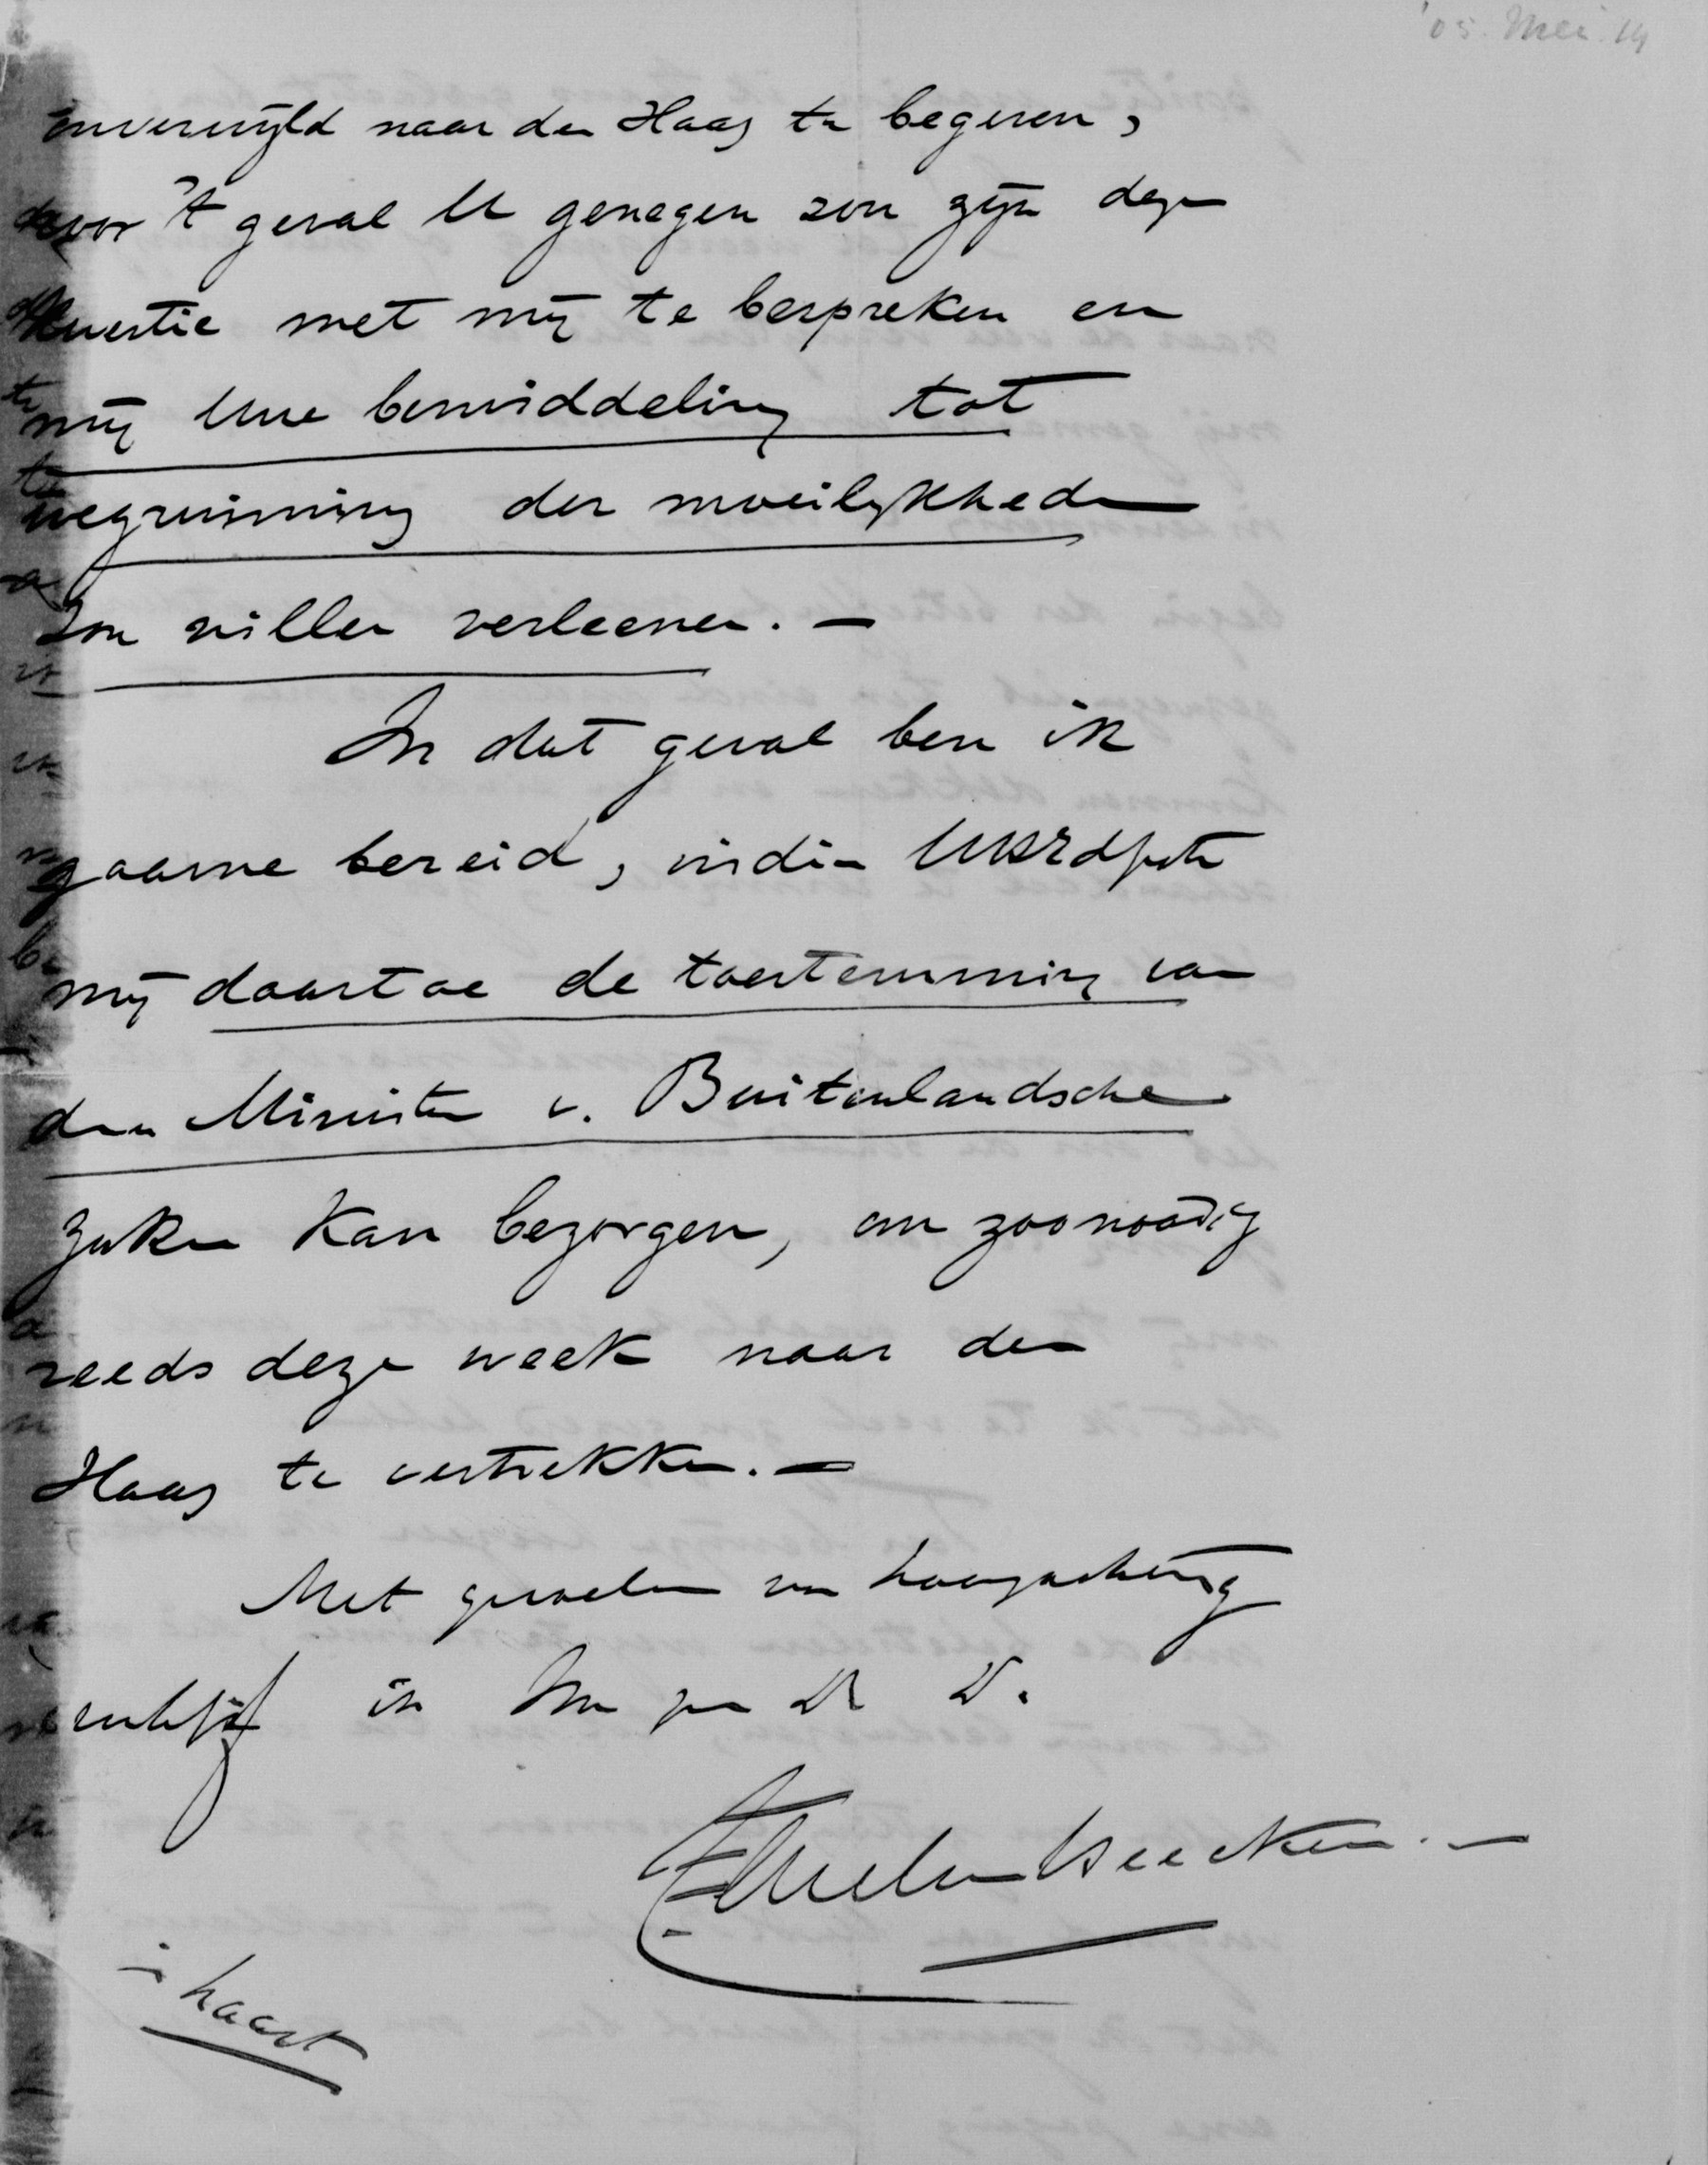 '05. Mei. 14
onverwijld naar den Haag te begeven,
voor 't geval U genegen zou zijn deze
kwestie met mij te bespreken en
mij Uwe bemiddeling tot
wegruiming der moeilijkheden
zou willen verleenen. —
In dat geval ben ik
gaarne bereid, indien
mij daartoe de toestemming van
den Minister v. Buitenlandsche
Zaken kan bezorgen, om zoonoodig
reeds deze week naar den
Haag te vertrekken. —
Met gevoelens van hoogachting
verblijf ik
in haast